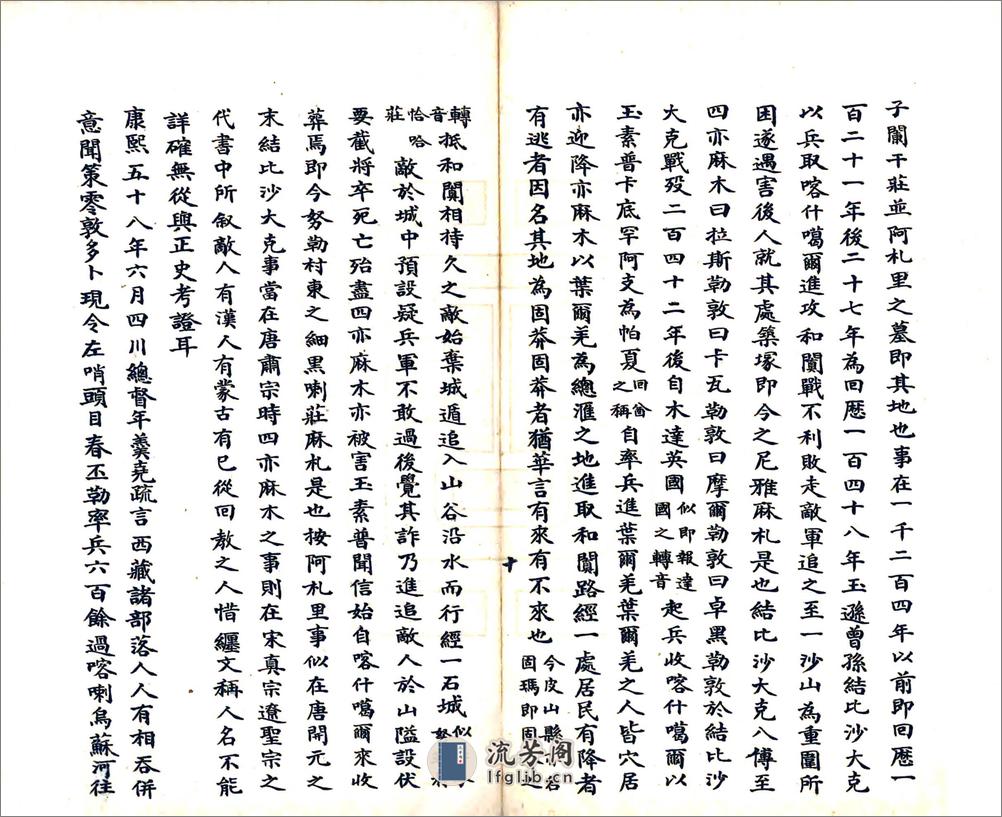 子闌干莊並阿札里之墓即其地也事在一千二百四年以前即回歷一
百二十一年後二十七年為回歷一百四十八年玉遜曾孫結比沙大克
以兵取喀什噶爾進攻和闐戰不利敗走敵軍追之至一沙山為重圍所
困遂遇害後人就其處築塚即今之尼雅麻札是也結比沙大克八傳至
四亦麻木曰拉斯勒敦曰卡瓦勒敦曰摩爾勒敦曰卓黑勒敦於結比沙
大克戰歿二百四十二年後自木達英國似即報達國之轉音起兵收喀什噶爾以
玉素普卡底罕阿支為帕夏回酋之稱自率兵進葉爾羌葉爾羌之人皆穴居
亦迎降亦麻木以葉爾羌為總滙之地進取和闐路經一處居民有降者
有逃者因名其地為固莽固莽者猶華言有來有不來也今皮山縣名固瑪即固
十
轉音抵和闐相持久之敵始棄城遁追入山谷沿水而行經一石城似
恰哈莊敵於城中預設疑兵軍不敢過後覺其詐乃進追敵人於山隘設伏
要截將卒死亡殆盡四亦麻木亦被害玉素普聞信始自喀什噶爾來收
葬焉即今努勒村東之細黑喇莊麻札是也按阿札里事似在唐開元之
末結比沙大克事當在唐肅宗時四亦麻木之事則在宋真宗遼聖宗之
代書中所敘敵人有漢人有蒙古有已從回教之人惜纏文稱人名不能
詳確無從與正史考證耳
康熙五十八年六月四川總督年羹堯疏言西藏諸部落人人有相吞併
意聞策零敦多卜現令左哨頭目春丕勒率兵六百餘過喀喇烏蘇河往
流芳阁
lfglib.cn